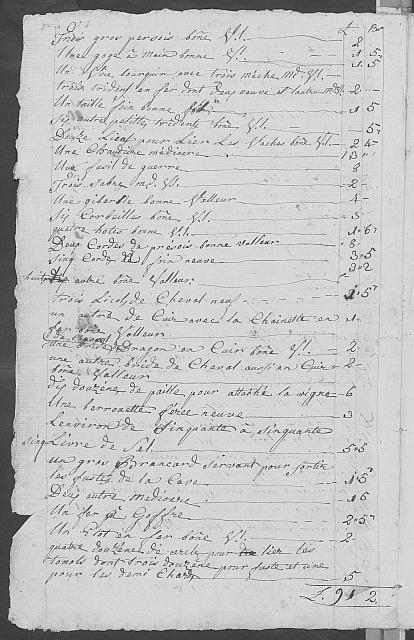 £ Bz
Trois gros persois bone V.l. 2
Une goge à main bonne V.l. 1 5
Un Vire tourquin avec trois mêche md. V.l. 1 5
trois trident en fer dont deux neuve et l'autre md. V.l. 2 -
Un taille foin bonne 1 5
Six autre petites tridents bone V.l. 5
Douze Lien pour Lier Les Vaches bone V.l. 2 4
Une Chaudiere médiocre 13 "
Un fusil de guerre 8
Trois Sabre md. V.l. 2 -
Une gibardle bonne Valleur 4 -
Six Corbeilles bone V.l. 3
quatre hotes bonne V.l. 1 6
Deux Cordes de pressois bonne valleur 8 -
Sinq Cordes à foin neuve 3 5
huit autre bone Valleur 3 2
trois Licols de Cheval neuf 1 5
un autre de Cuir avec la Chainette en
fer bone Valleur 1 -
une bride de Dragon en Cuir bone V.l. 2
une autre bride de Cheval aussi en Cuir
bone Valleur 2 -
dix douzène de paille pour attaché la vigne 6
Une berrouette férée neuve 3
L'environ de Sinquante à Sinquante
Sinq Livre de Sel 5 5
un gros Brancard servant pour sortir
les fustes de la Cave 1 5
Deux autre mediocre 1 5
Un fer à Goffre 2 5
Un Etot en fer bone V.l. 2 -
quatre douzène de cercle pour lier les
tonots dont trois douzène pour fuste et une
pour les demi Chars 5
£ 91 2